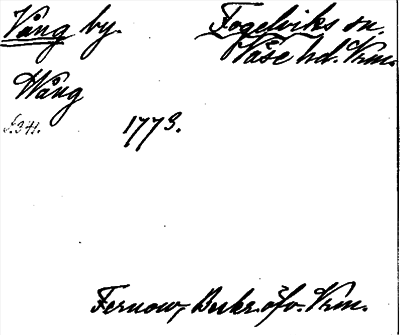 Vång by. Fogelviks sn.
Väse hd. Vrm.
Wång
s. 341. 1773.
Fernow, Beskr. öfv. Vrm.